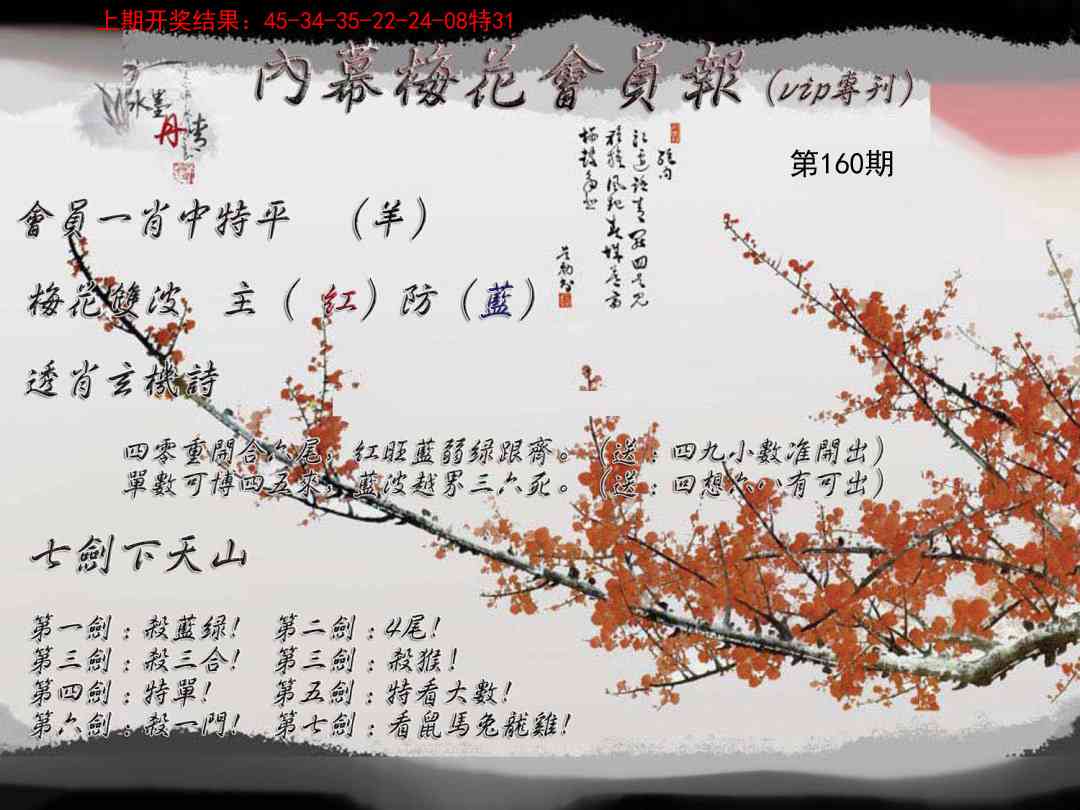 上期开奖结果：45-34-35-22-24-08特31
內幕梅花會員報（vip專刊）
水墨
丹青
第160期
會員一肖中特平　（羊）
梅花雙波　主（紅）防（藍）
透肖玄機詩
四零重開合六尾，紅旺藍弱绿跟齊。（送：四九小數准開出）
單數可博四五來，藍波越界三六死。（送：回想六八有可出）
七劍下天山
第一劍：殺藍绿！　第二劍：4尾！
第三劍：殺三合！　第三劍：殺猴！
第四劍：特單！　第五劍：特看大數！
第六劍：殺一門！　第七劍：看鼠馬兔龍雞！